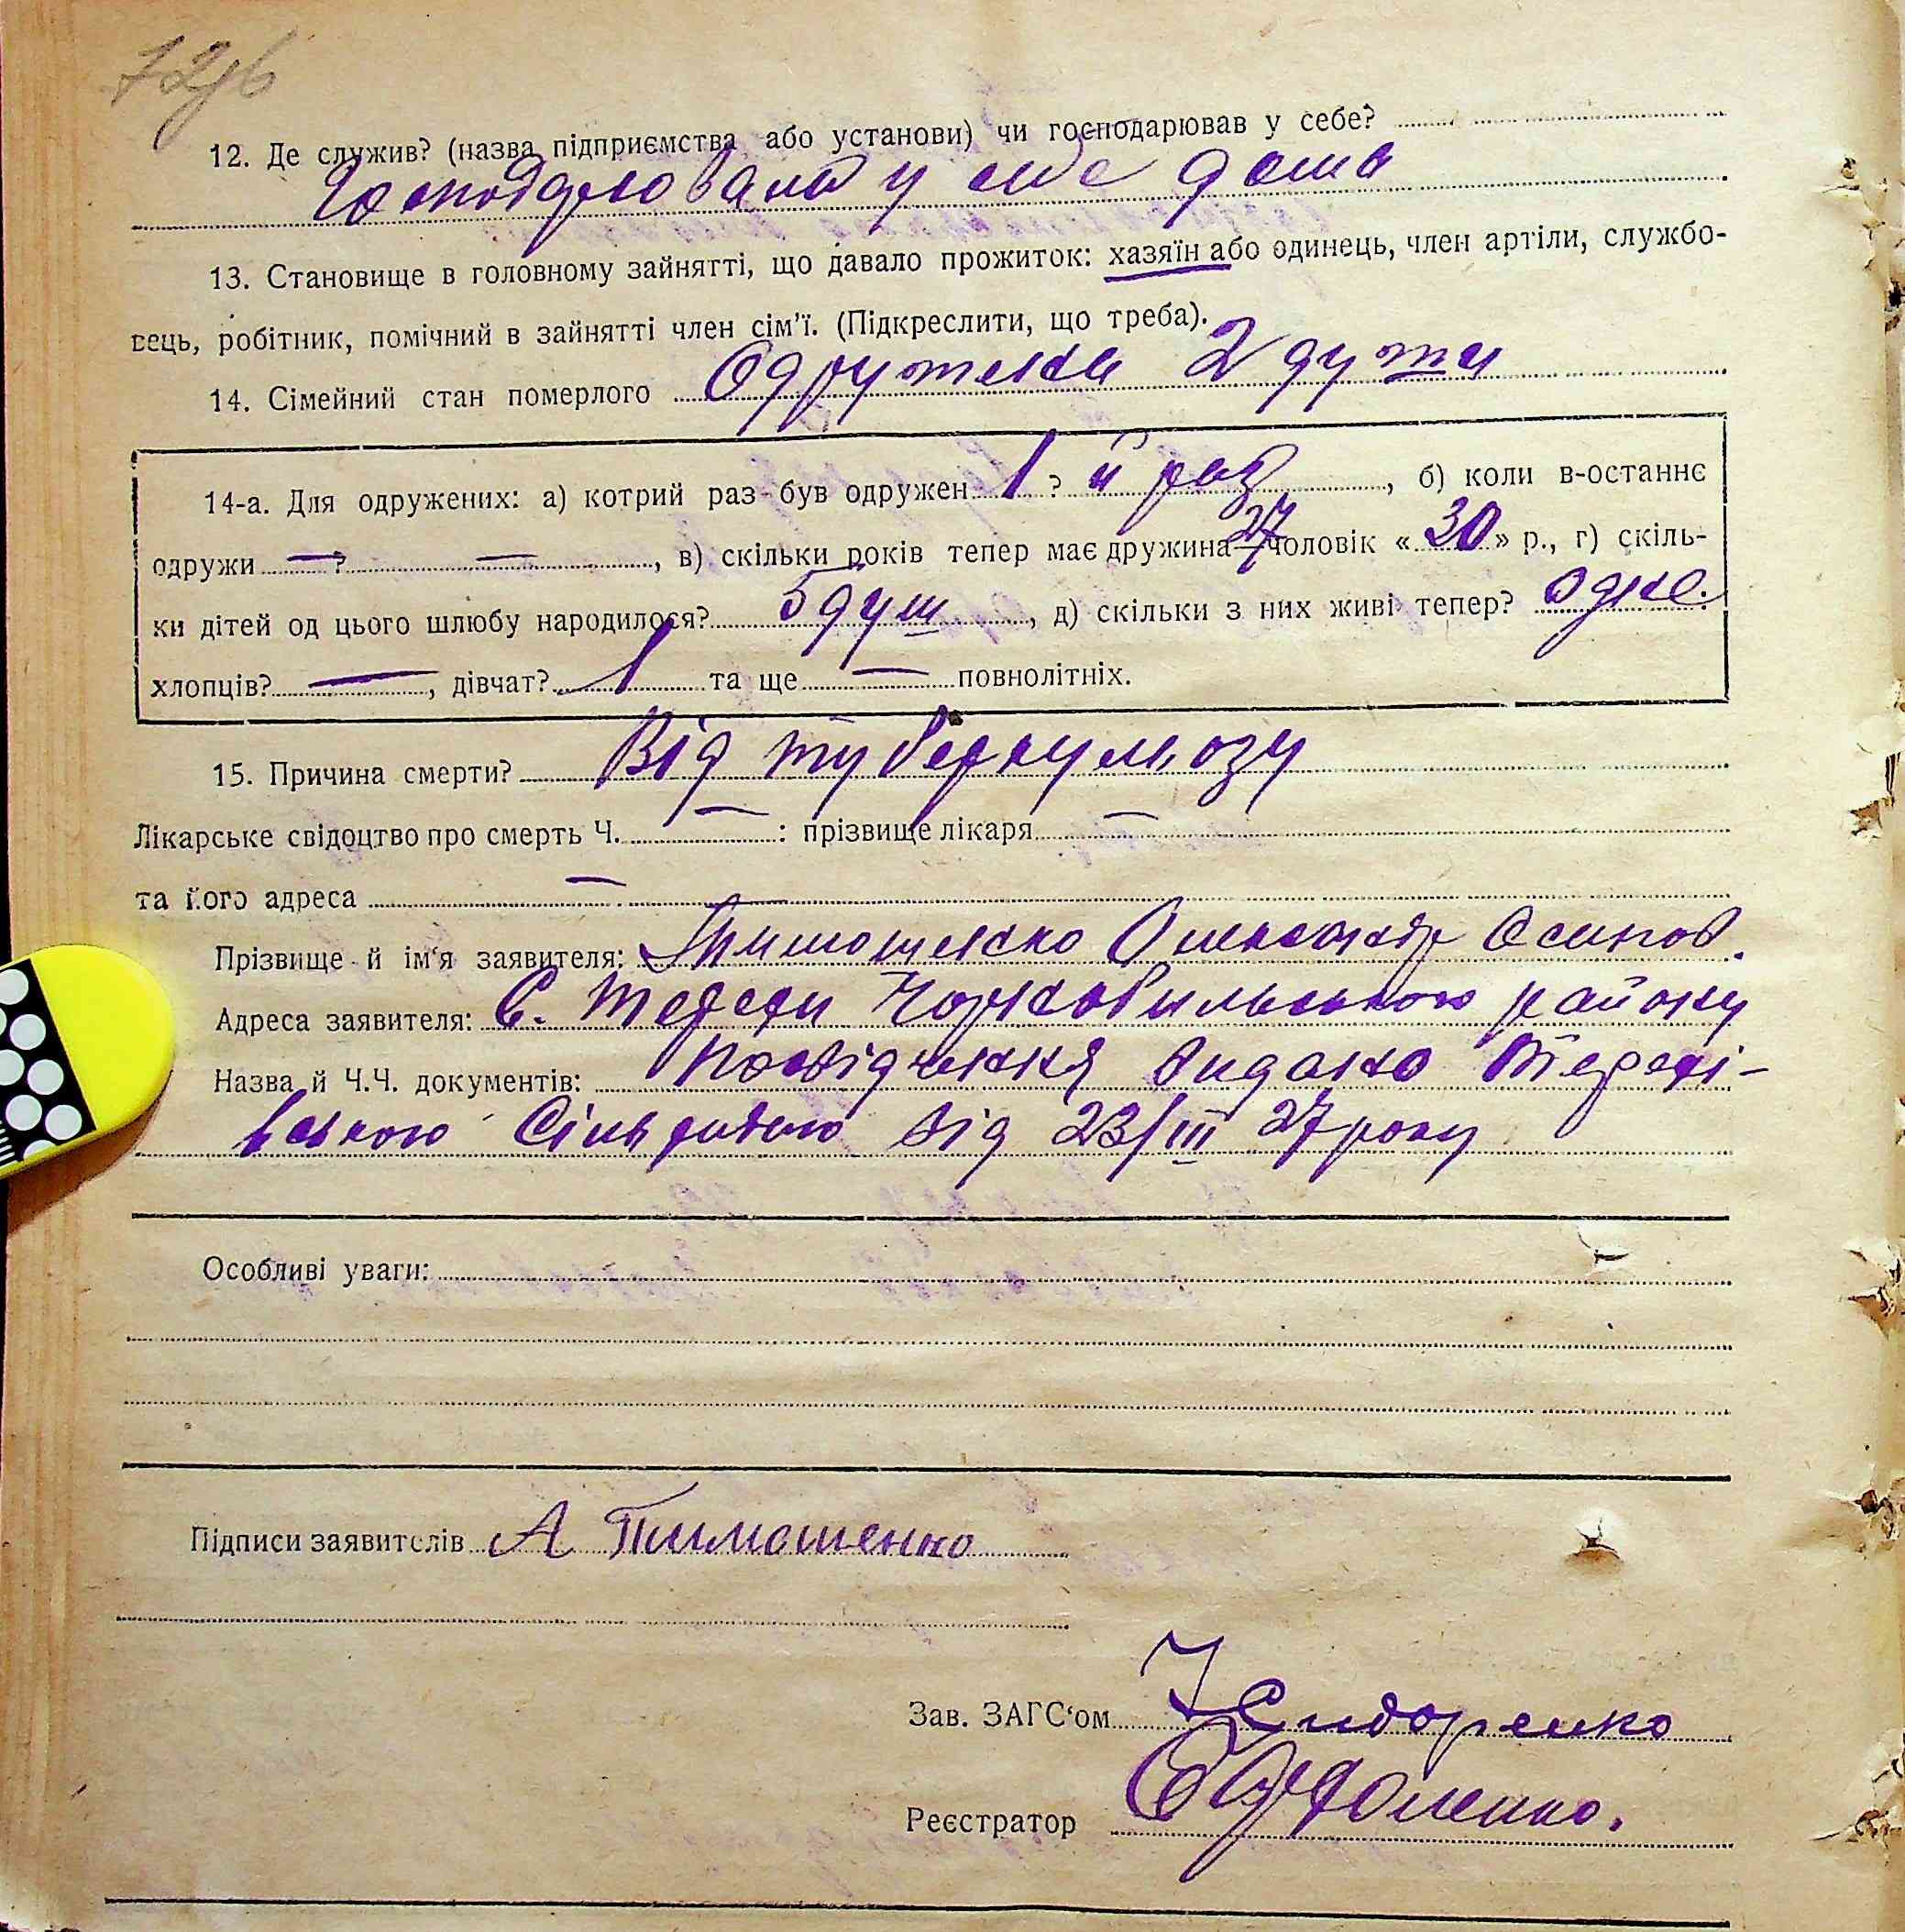 72зв
12. Де служив? (назва підприємства або установи) чи господарював у себе?
Господарювала у себе дома
13. Становище в головному зайнятті, що давало прожиток: хазяїн або одинець, член артіли, службо-
вець, робітник, помічний в зайнятті член сім’ї. (Підкреслити, що треба).
14. Сімейний стан померлого Одружена 2 души
14-а. Для одружених: а) котрий раз був одружен 1? й раз, б) коли в-останнє
одружи — ? —, в) скільки років тепер має дружина 27 чоловік «30» р., г) скіль-
ки дітей од цього шлюбу народилося? 5 душ, д) скільки з них живі тепер? одне.
хлопців? —, дівчат? 1 та ще — повнолітніх.
15. Причина смерти? Від туберкульозу
Лікарське свідоцтво про смерть Ч. — : прізвище лікаря —
та його адреса —
Прізвище й ім‘я заявителя: Тимошенко Олександр Осипов.
Адреса заявителя: С. Терехи Чорнобильского району
Назва й Ч.Ч. документів: Посвідчення видано Терехі-
вською Сільрадою від 23/III 27 року
Особливі уваги:
Підписи заявителів А Тимошенко
Зав. ЗАГС‘ом Сидоренко
Реєстратор